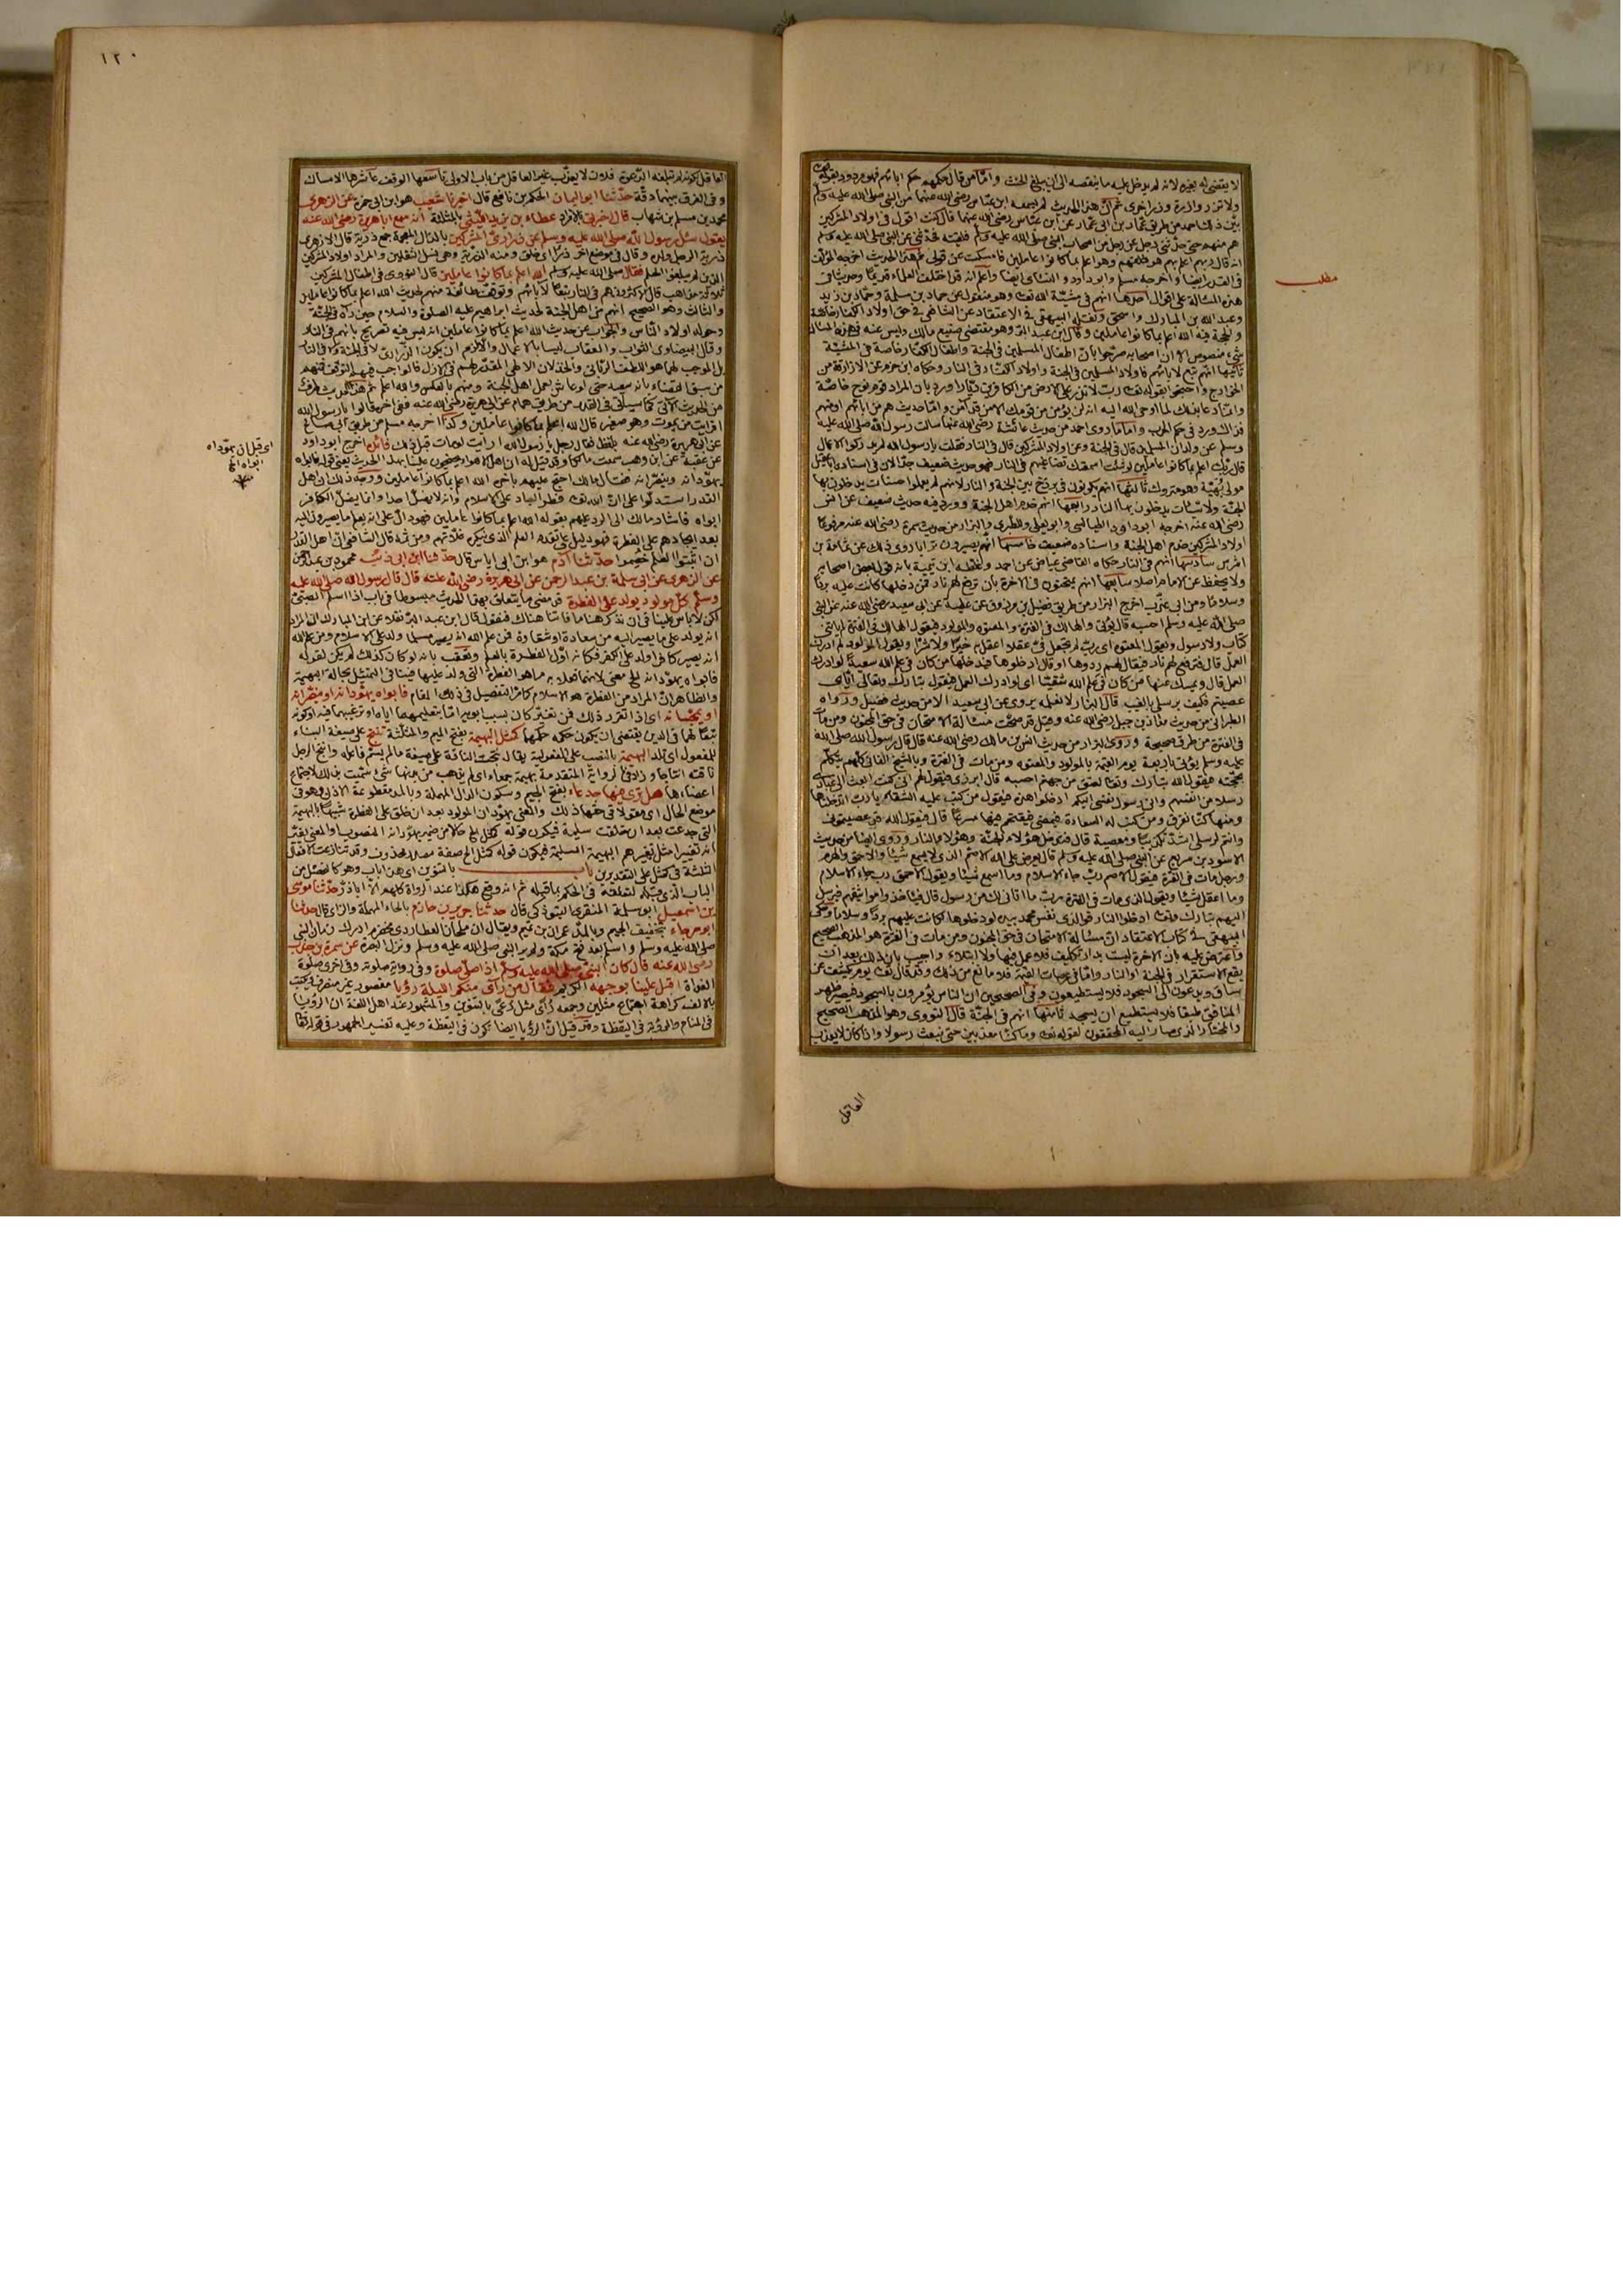 لا يقتضي له بغيره لانه لم يدخل عليه ما ينقصه الى ان يبلغ الحنث واما من قال حكمهم حكم ابائهم فهو مردود بقوله تعالى
ولا تزر وازرة وزر اخرى ثم ان هذا الحديث لم يسمعه ابن عباس رضي الله عنهما من النبي صلى الله عليه وسلم
بين ذلك احمد من طريق عمار بن ابي عمار عن ابن عباس رضي الله عنهما قال كنت اقول في اولاد المشركين
هم منهم حتى حدثني رجل عن رجل من اصحاب النبي صلى الله عليه وسلم فلقيته فحدثني عن النبي صلى الله عليه وسلم
انه قال ربهم اعلم بهم هو خلقهم وهو اعلم بما كانوا عاملين فامسكت عن قولي ثم هذا الحديث اخرجه المؤلف
في القدر ايضا واخرجه مسلم وابو داود والنسائي ايضا واعلم انه قد اختلف العلماء قديما وحديثا في
هذه المسألة على اقوال احدها انهم في مشيئة الله تعالى وهو منقول عن حماد بن سلمة وحماد بن زيد
وعبد الله بن المبارك واسحق ونقله البيهقي في الاعتقاد عن الشافعي في حق اولاد الكفار خاصة
والحجة فيه الله اعلم بما كانوا عاملين وقال ابن عبد البر وهو مقتضى صنيع مالك وليس عنه في هذه المسألة
شيء منصوص الا ان اصحابه صرحوا بان اطفال المسلمين في الجنة واطفال الكفار خاصة في المشيئة
ثانيها انهم تبع لابائهم فاولاد المسلمين في الجنة واولاد الكفار في النار وحكاه ابن حزم عن الازارقة من
الخوارج واحتجوا بقوله تعالى رب لا تذر على الارض من الكافرين ديارا ورد بان المراد قوم نوح خاصة
وانما دعا بذلك لما اوحى الله اليه انه لن يؤمن من قومك الا من قد آمن واما حديث هم من ابائهم او منهم
فذاك ورد في حكم الحرب واما ما روى احمد من حديث عائشة رضي الله عنها سألت رسول الله صلى الله عليه
وسلم عن ولدان المسلمين قال في الجنة وعن اولاد المشركين قال في النار فقلت يا رسول الله لم يدركوا الاعمال
قال ربك اعلم بما كانوا عاملين لو شئت اسمعتك تضاغيهم في النار فهو حديث ضعيف جدا لان في اسناده ابا عقيل
مولى بهية وهو متروك ثالثها انهم يكونون في برزخ بين الجنة والنار لانهم لم يعملوا حسنات يدخلون بها
الجنة ولا سيئات يدخلون بها النار رابعها انهم خدم اهل الجنة وورد فيه حديث ضعيف عن انس
رضي الله عنه اخرجه ابو داود الطيالسي وابو يعلى وللطبري والبزار من حديث سمرة رضي الله عنه مرفوعا
اولاد المشركين خدم اهل الجنة واسناده ضعيف خامسها انهم يصيرون ترابا روى ذلك عن ثمامة بن
اشرس سادسها انهم في النار حكاه القاضي عياض عن احمد وغلطه ابن تيمية بانه قول لبعض اصحابه
ولا يحفظ عن الامام اصلا سابعها انهم يمتحنون في الآخرة بان ترفع لهم نار فمن دخلها كانت عليه بردا
وسلاما ومن ابى عذب اخرج البزار من طريق فضيل بن مرزوق عن عطية عن ابي سعيد رضي الله عنه عن النبي
صلى الله عليه وسلم احسبه قال يؤتى بالهالك في الفترة والمعتوه والمولود فيقول الهالك في الفترة لم يأتني
كتاب ولا رسول ويقول المعتوه اي رب لم تجعل لي عقلا اعقل به خيرا ولا شرا ويقول المولود لم ادرك
العمل قال فترفع لهم نار فيقال لهم ردوها او قال ادخلوها فيدخلها من كان في علم الله سعيدا لو ادرك
العمل قال ويمسك عنها من كان في علم الله شقيا اي لو ادرك العمل فيقول تبارك وتعالى اياي
عصيتم فكيف برسلي بالغيب قال البزار لا نعلمه يروى عن ابي سعيد الا من حديث فضيل ورواه
الطبراني من حديث معاذ بن جبل رضي الله عنه وقيل قد صحت مسألة الامتحان في حق المجنون ومن مات
في الفترة من طرق صحيحة وروى البزار من حديث انس بن مالك رضي الله عنه قال قال رسول الله صلى الله
عليه وسلم يؤتى باربعة يوم القيمة بالمولود والمعتوه ومن مات في الفترة وبالشيخ الفاني كلهم يتكلم
بحجته فيقول الله تبارك وتعالى لعنق من جهنم احسبه قال ابرزي فيقول لهم اني كنت ابعث الى عبادي
رسلا من انفسهم واني رسول نفسي اليكم ادخلوا هذه فيقول من كتب عليه الشقاء يا رب اندخلها
ومنها كنا نفرق ومن كتب له السعادة فيمضي فيقتحم فيها مسرعا قال فيقول الله قد عصيتموني
وانتم لرسلي اشد تكذيبا ومعصية قال فيدخل هؤلاء الجنة وهؤلاء النار وروى ايضا من حديث
الاسود بن سريع عن النبي صلى الله عليه وسلم قال يعرض على الله الاصم الذي لا يسمع شيئا والاحمق والهرم
ورجل مات في الفترة فيقول الاصم رب جاء الاسلام وما اسمع شيئا ويقول الاحمق رب جاء الاسلام
وما اعقل شيئا ويقول الذي مات في الفترة رب ما اتاني لك من رسول قال فيأخذ مواثيقهم فيرسل
اليهم تبارك وتعالى ادخلوا النار فوالذي نفس محمد بيده لو دخلوها لكانت عليهم بردا وسلاما وحكى
البيهقي في كتاب الاعتقاد ان مسألة الامتحان في حق المجنون ومن مات في الفترة هو المذهب الصحيح
واعترض عليه بان الاخرة ليست بدار تكليف فلا عمل فيها ولا ابتلاء واجيب بان ذلك بعد ان
يقع الاستقرار في الجنة او النار واما في عرصات القيمة فلا مانع من ذلك وقد قال تعالى يوم يكشف عن
ساق ويدعون الى السجود فلا يستطيعون وفي الصحيحين ان الناس يؤمرون بالسجود فيصير ظهر
المنافق طبقا فلا يستطيع ان يسجد ثامنها انهم في الجنة قال النووي وهو المذهب الصحيح
والمختار الذي صار اليه المحققون لقوله تعالى وما كنا معذبين حتى نبعث رسولا واذا كان لا يعذب
مطلب
العاقل
١٢٠
العاقل لكونه لم تبلغه الدعوة فلان لا يعذب غير العاقل من باب الاولى تاسعها الوقف عاشرها الامساك
وفي الفرق بينهما دقة حدثنا ابو اليمان الحكم بن نافع قال اخبرنا شعيب هو ابن ابي حمزة عن الزهري
محمد بن مسلم بن شهاب قال اخبرني بالافراد عطاء بن يزيد الليثي بالمثلثة انه سمع ابا هريرة رضي الله عنه
يقول سئل رسول الله صلى الله عليه وسلم عن ذراري المشركين بالذال المعجمة جمع ذرية قال الازهري
ذرية الرجل ولده وقال في موضع اخر ذرأ اي خلق ومنه الذرية وهي نسل الثقلين والمراد اولاد المشركين
الذين لم يبلغوا الحلم فقال صلى الله عليه وسلم الله اعلم بما كانوا عاملين قال النووي في اطفال المشركين
ثلاثة مذاهب قال الاكثرون هم في النار تبعا لابائهم وتوقفت طائفة منهم لحديث الله اعلم بما كانوا عاملين
والثالث وهو الصحيح انهم من اهل الجنة لحديث ابراهيم عليه الصلوة والسلام حين رآه في الجنة
وحوله اولاد الناس والجواب عن حديث الله اعلم بما كانوا عاملين انه ليس فيه تصريح بانهم في النار
وقال البيضاوي الثواب والعقاب ليسا بالاعمال والا لزم ان يكون الذراري لا في الجنة ولا في النار
بل الموجب لهما هو اللطف الرباني والخذلان الالهي المقدر لهم في الازل فالواجب فيهم التوقف فمنهم
من سبق القضاء بانه سعيد حتى لو عاش يعمل اهل الجنة ومنهم بالعكس والله اعلم ثم هذا الحديث طرف
من الحديث الآتي كما سيأتي في القدر من طريق همام عن ابي هريرة رضي الله عنه ففي اخره قالوا يا رسول الله
افرأيت من يموت وهو صغير قال الله اعلم بما كانوا عاملين وكذا اخرجه مسلم من طريق ابي صالح
عن ابي هريرة رضي الله عنه بلفظ فقال رجل يا رسول الله ارأيت لو مات قبل ذلك فائدة اخرج ابو داود
عن عقبة عن ابن وهب سمعت مالكا وقد قيل له ان اهل الاهواء يحتجون علينا بهذا الحديث يعني قوله فابواه
يهودانه وينصرانه فقال مالك احتج عليهم باخره الله اعلم بما كانوا عاملين ووجه ذلك ان اهل
القدر استدلوا على ان الله تعالى فطر العباد على الاسلام وانه لا يضل احدا وانما يضل الكافر
ابواه فاشار مالك الى الرد عليهم بقوله الله اعلم بما كانوا عاملين فهو دال على انه يعلم ما يصيرون اليه
بعد ايجادهم على الفطرة فهو دليل على تقدم العلم الذي ينكره غلاتهم ومن ثمه قال الشافعي ان اهل القدر
ان اثبتوا العلم خصموا حدثنا آدم هو ابن ابي اياس قال حدثنا ابن ابي ذئب محمد بن عبد الرحمن
عن الزهري عن ابي سلمة بن عبد الرحمن عن ابي هريرة رضي الله عنه قال قال رسول الله صلى الله عليه
وسلم كل مولود يولد على الفطرة قد مضى ما يتعلق بهذا الحديث مبسوطا في باب اذا اسلم الصبي
لكن لا بأس علينا في ان نذكر هنا ما فاتنا هناك فنقول قال ابن عبد البر نقلا عن ابن المبارك ان المراد
انه يولد على ما يصير اليه من سعادة او شقاوة فمن علم الله انه يصير مسلما ولد على الاسلام ومن علم الله
انه يصير كافرا ولد على الكفر فكأنه اول الفطرة بالعلم وتعقب بانه لو كان كذلك لم يكن لقوله
فابواه يهودانه الخ معنى لانهما فعلا به ما هو الفطرة التي ولد عليها فينافي التمثيل بحالة البهيمة
والظاهر ان المراد من الفطرة هو الاسلام كما مر التفصيل في ذلك المقام فابواه يهودانه او ينصرانه
او يمجسانه اي اذا تقرر ذلك فمن تغير كان بسبب ابويه اما بتعليمهما اياه او ترغيبهما فيه او كونه
تبعا لهما في الدين يقتضي ان يكون حكمه حكمهما كمثل البهيمة بفتح الميم والمثلثة تنتج على صيغة البناء
للمفعول اي تلد البهيمة بالنصب على المفعولية يقال نتجت الناقة على صيغة ما لم يسم فاعله وانتج الرجل
ناقته انتاجا وزاد في الرواية المتقدمة بهيمة جمعاء اي لم يذهب من بدنها شيء سميت بذلك لاجتماع
اعضاءها هل ترى فيها جدعاء بفتح الجيم وسكون الدال المهملة وبالمد مقطوعة الاذن وهو في
موضع الحال اي مقولا في حقها ذلك والمعنى يهودان المولود بعد ان خلق على الفطرة شبيها بالبهيمة
التي جدعت بعد ان خلقت سليمة فيكون قوله كمثل الخ حالا من ضمير يهودانه المنصوب او المعنى يغير
انه تغييرا مثل تغييرهم البهيمة السليمة فيكون قوله كمثل الخ صفة مصدر محذوف وقد تنازعت الافعال
الثلثة في كمثل على التقديرين باب بالتنوين اي هذا باب وهو كالفصل من
الباب الذي قبله لتعلقه في الحكم بما قبله ثم انه وقع هكذا عند الرواة كلهم الا ابا ذر حدثنا موسى
بن اسمعيل ابو سلمة المنقري التبوذكي قال حدثنا جرير بن حازم بالحاء المهملة والزاي قال حدثنا
ابو رجاء بتخفيف الجيم وبالمد عمران بن تيم ويقال ابن ملحان العطاردي مخضرم ادرك زمان النبي
صلى الله عليه وسلم واسلم بعد فتح مكة ولم ير النبي صلى الله عليه وسلم ونزل البصرة عن سمرة بن جندب
رضي الله عنه قال كان النبي صلى الله عليه وسلم اذا صلى صلوة وفي رواية صلوته وفي اخرى صلوة
الغداة اقبل علينا بوجهه الكريم فقال من رأى منكم الليلة رؤيا مقصور غير منصرف يكتب
بالالف كراهة اجتماع مثلين وجمعه رؤى مثل رعى بالتنوين والمشهور عند اهل اللغة ان الرؤيا
في المنام والرؤية في اليقظة وقد قيل ان الرؤيا ايضا تكون في اليقظة وعليه تفسير الجمهور في قوله تعالى
اي قبل ان يهوداه
ابواه الخ